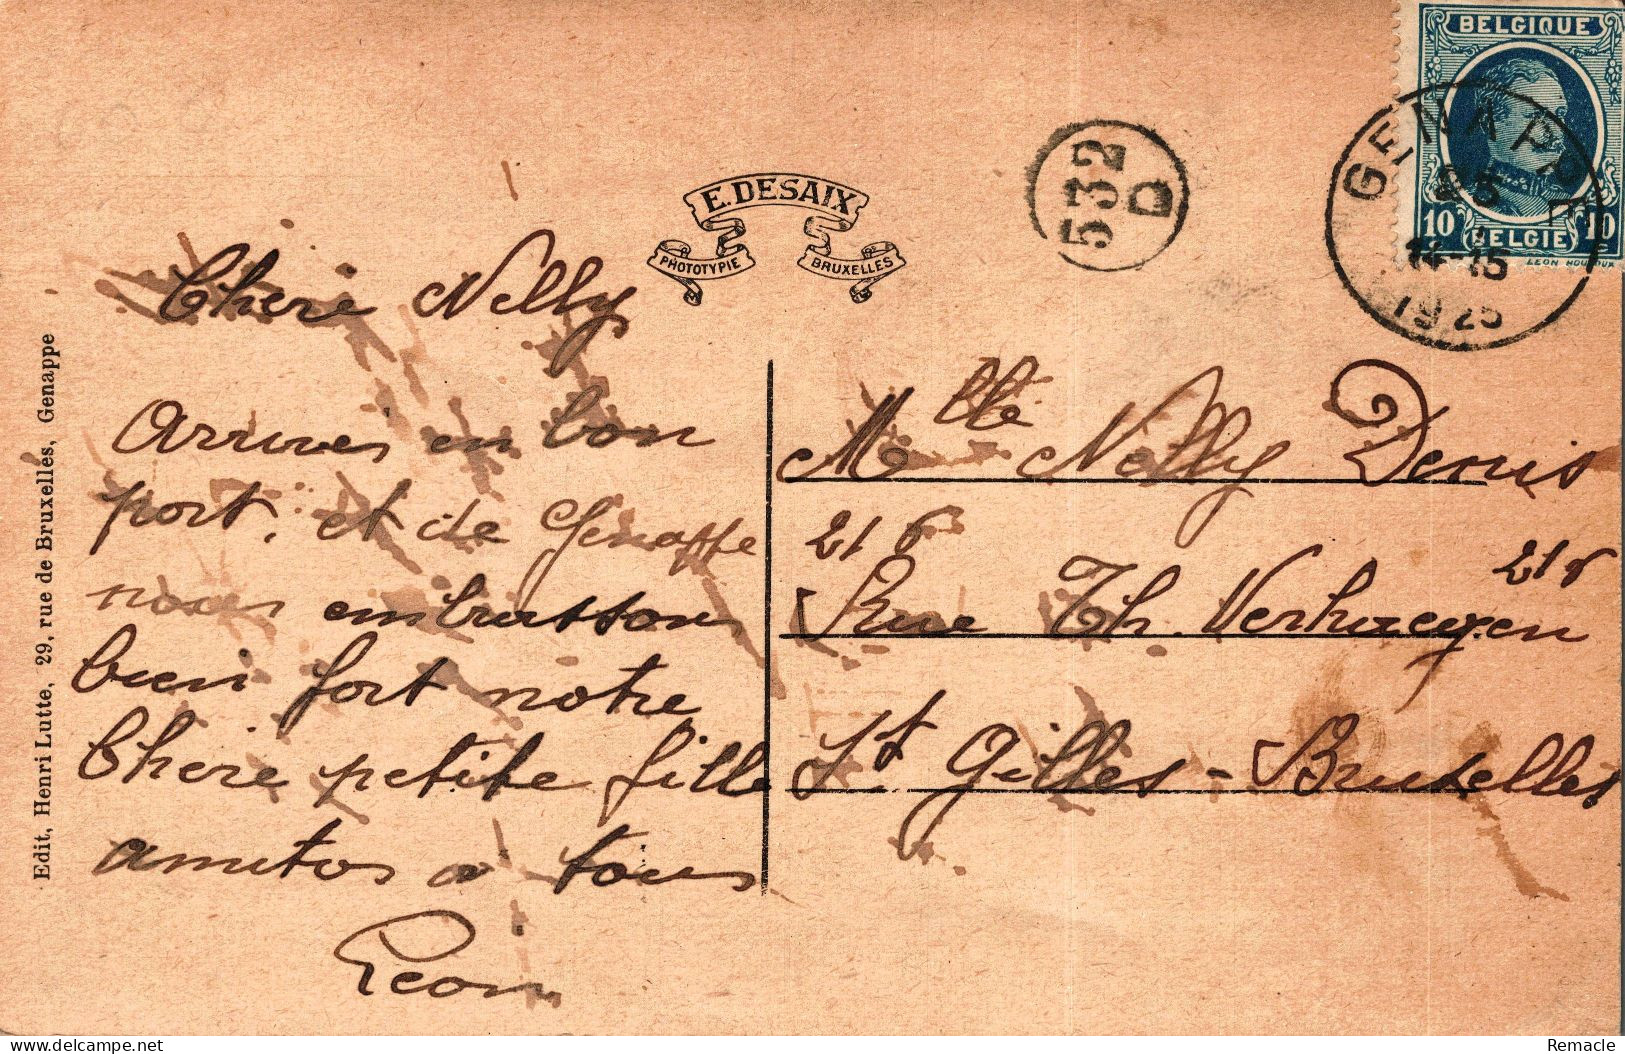 BELGIQUE
10 10
BELGIE
LEON HOU
GENAPPE
14-15
1925
532
D
E. DESAIX
PHOTOTYPIE BRUXELLES
Edit, Henri Lutte, 29, rue de Bruxelles, Genappe
Chere Nelly
Arrives en bon
port, et de Genappe
nous embrassons
bien fort notre
Chere petite fille
amitos a tous
Leon
Mlle Nelly Denis
216 216
Rue Th. Verhaegen
St Gilles - Bruxelles
Remacle
delcampe.net